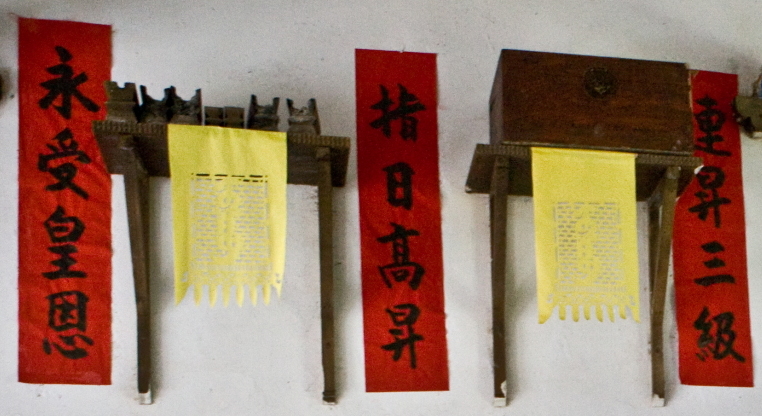 永受皇恩
指日高昇
連昇三級